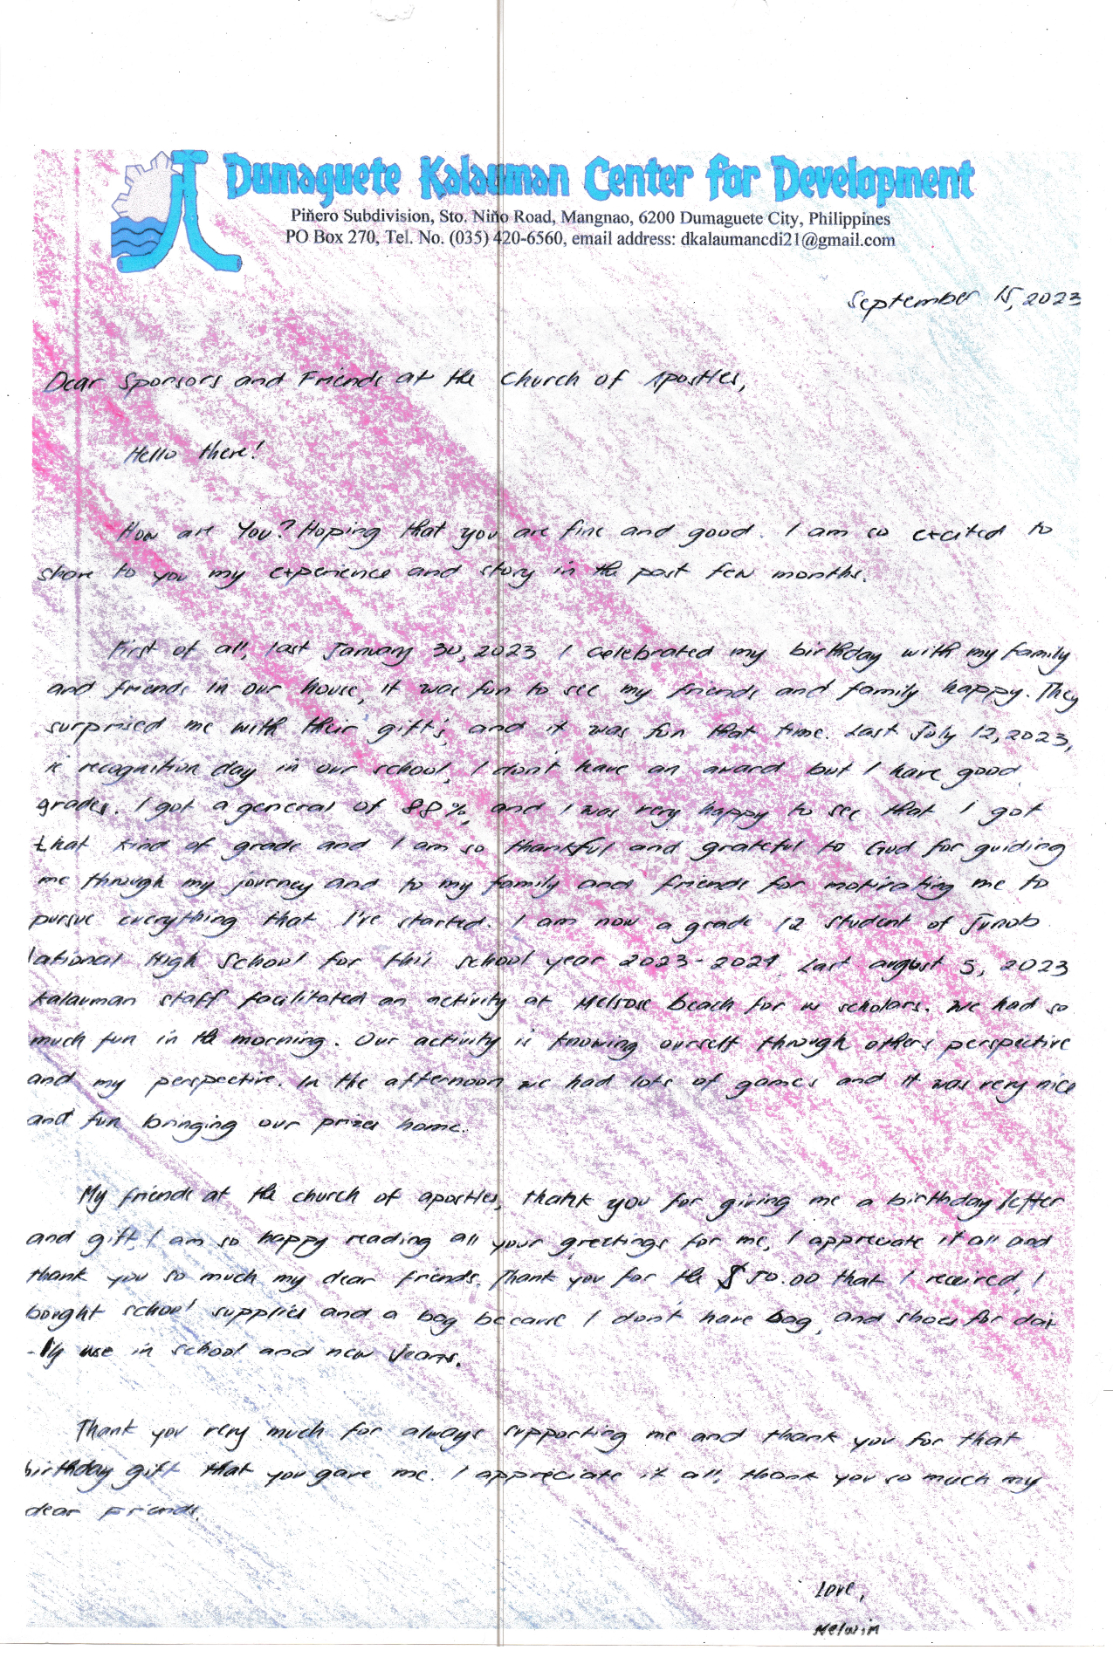 Dumaguete Kalauman Center for Development
Piñero Subdivision, Sto. Niño Road, Mangnao, 6200 Dumaguete City, Philippines
PO Box 270, Tel. No. (035) 420-6560, email address: dkalaumancdi21@gmail.com
September 15, 2023
Dear Sponsors and Friends at the Church of Apostles,
Hello there!
How are You? Hoping that you are fine and good. I am so excited to
share to you my experience and story in the past few months.
First of all, last January 30, 2023 I celebrated my birthday with my family
and friends in our house, it was fun to see my friends and family happy. They
surprised me with their gift's, and it was fun that time. Last July 12, 2023,
is recognition day in our school, I don't have an award but I have good
grades. I got a general of 88%, and I was very happy to see that I got
that kind of grade and I am so thankful and grateful to God for guiding
me through my journey and to my family and friends for motivating me to
pursue everything that I've started. I am now a grade 12 student of Junob
National High School for this school year 2023-2024. Last august 5, 2023
Kalauman staff facilitated an activity at Melrose beach for us scholars. We had so
much fun in the morning. Our activity is knowing ourself through others perspective
and my perspective. In the afternoon we had lots of games and it was very nice
and fun bringing our prizes home.
My friends at the church of apostles, thank you for giving me a birthday letter
and gift, I am so happy reading all your greetings for me, I appreciate it all and
thank you so much my dear friends. Thank you for the $50.00 that I received, I
bought school supplies and a bag because I don't have bag, and shoes for dai
-ly use in school and new Jeans.
Thank you very much for always supporting me and thank you for that
birthday gift that you gave me. I appreciate it all, thank you so much my
dear Friends.
Love,
Melwin